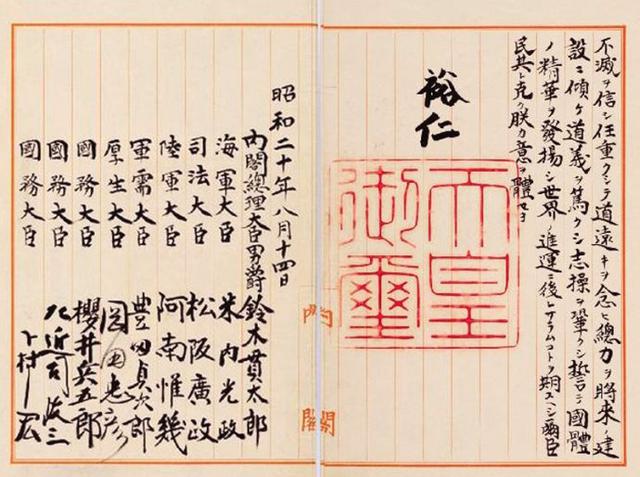 不滅ヲ信シ任重クシテ道遠キヲ念ヒ總力ヲ將來ノ建
設ニ傾ケ道義ヲ篤クシ志操ヲ鞏クシ誓テ國體
ノ精華ヲ發揚シ世界ノ進運ニ後レサラムコトヲ期スヘシ爾臣
民其レ克ク朕カ意ヲ體セヨ
裕仁
天皇
御璽
内閣
昭和二十年八月十四日
内閣總理大臣男爵鈴木貫太郎
海軍大臣 米内光政
司法大臣 松阪廣政
陸軍大臣 阿南惟幾
軍需大臣 豊田貞次郎
厚生大臣 岡田忠彦
國務大臣 櫻井兵五郎
國務大臣 左近司政三
國務大臣 下村宏